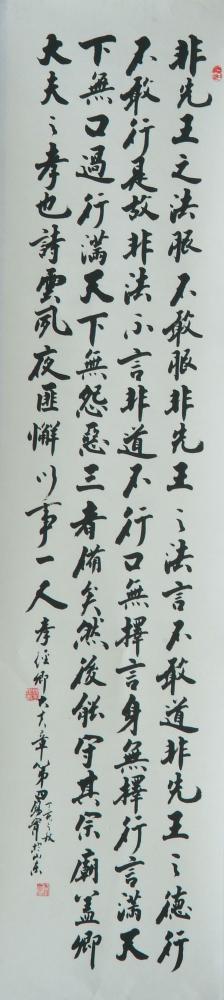 非先王之法服不敢服非先王之法言不敢道非先王之德行
不敢行是故非法不言非道不行口無擇言身無擇行言滿天
下無口過行滿天下無怨惡三者備矣然後能守其宗廟蓋卿
大夫之孝也詩雲夙夜匪懈以事一人
孝經卿大夫章第四
丁亥之秋
於山東